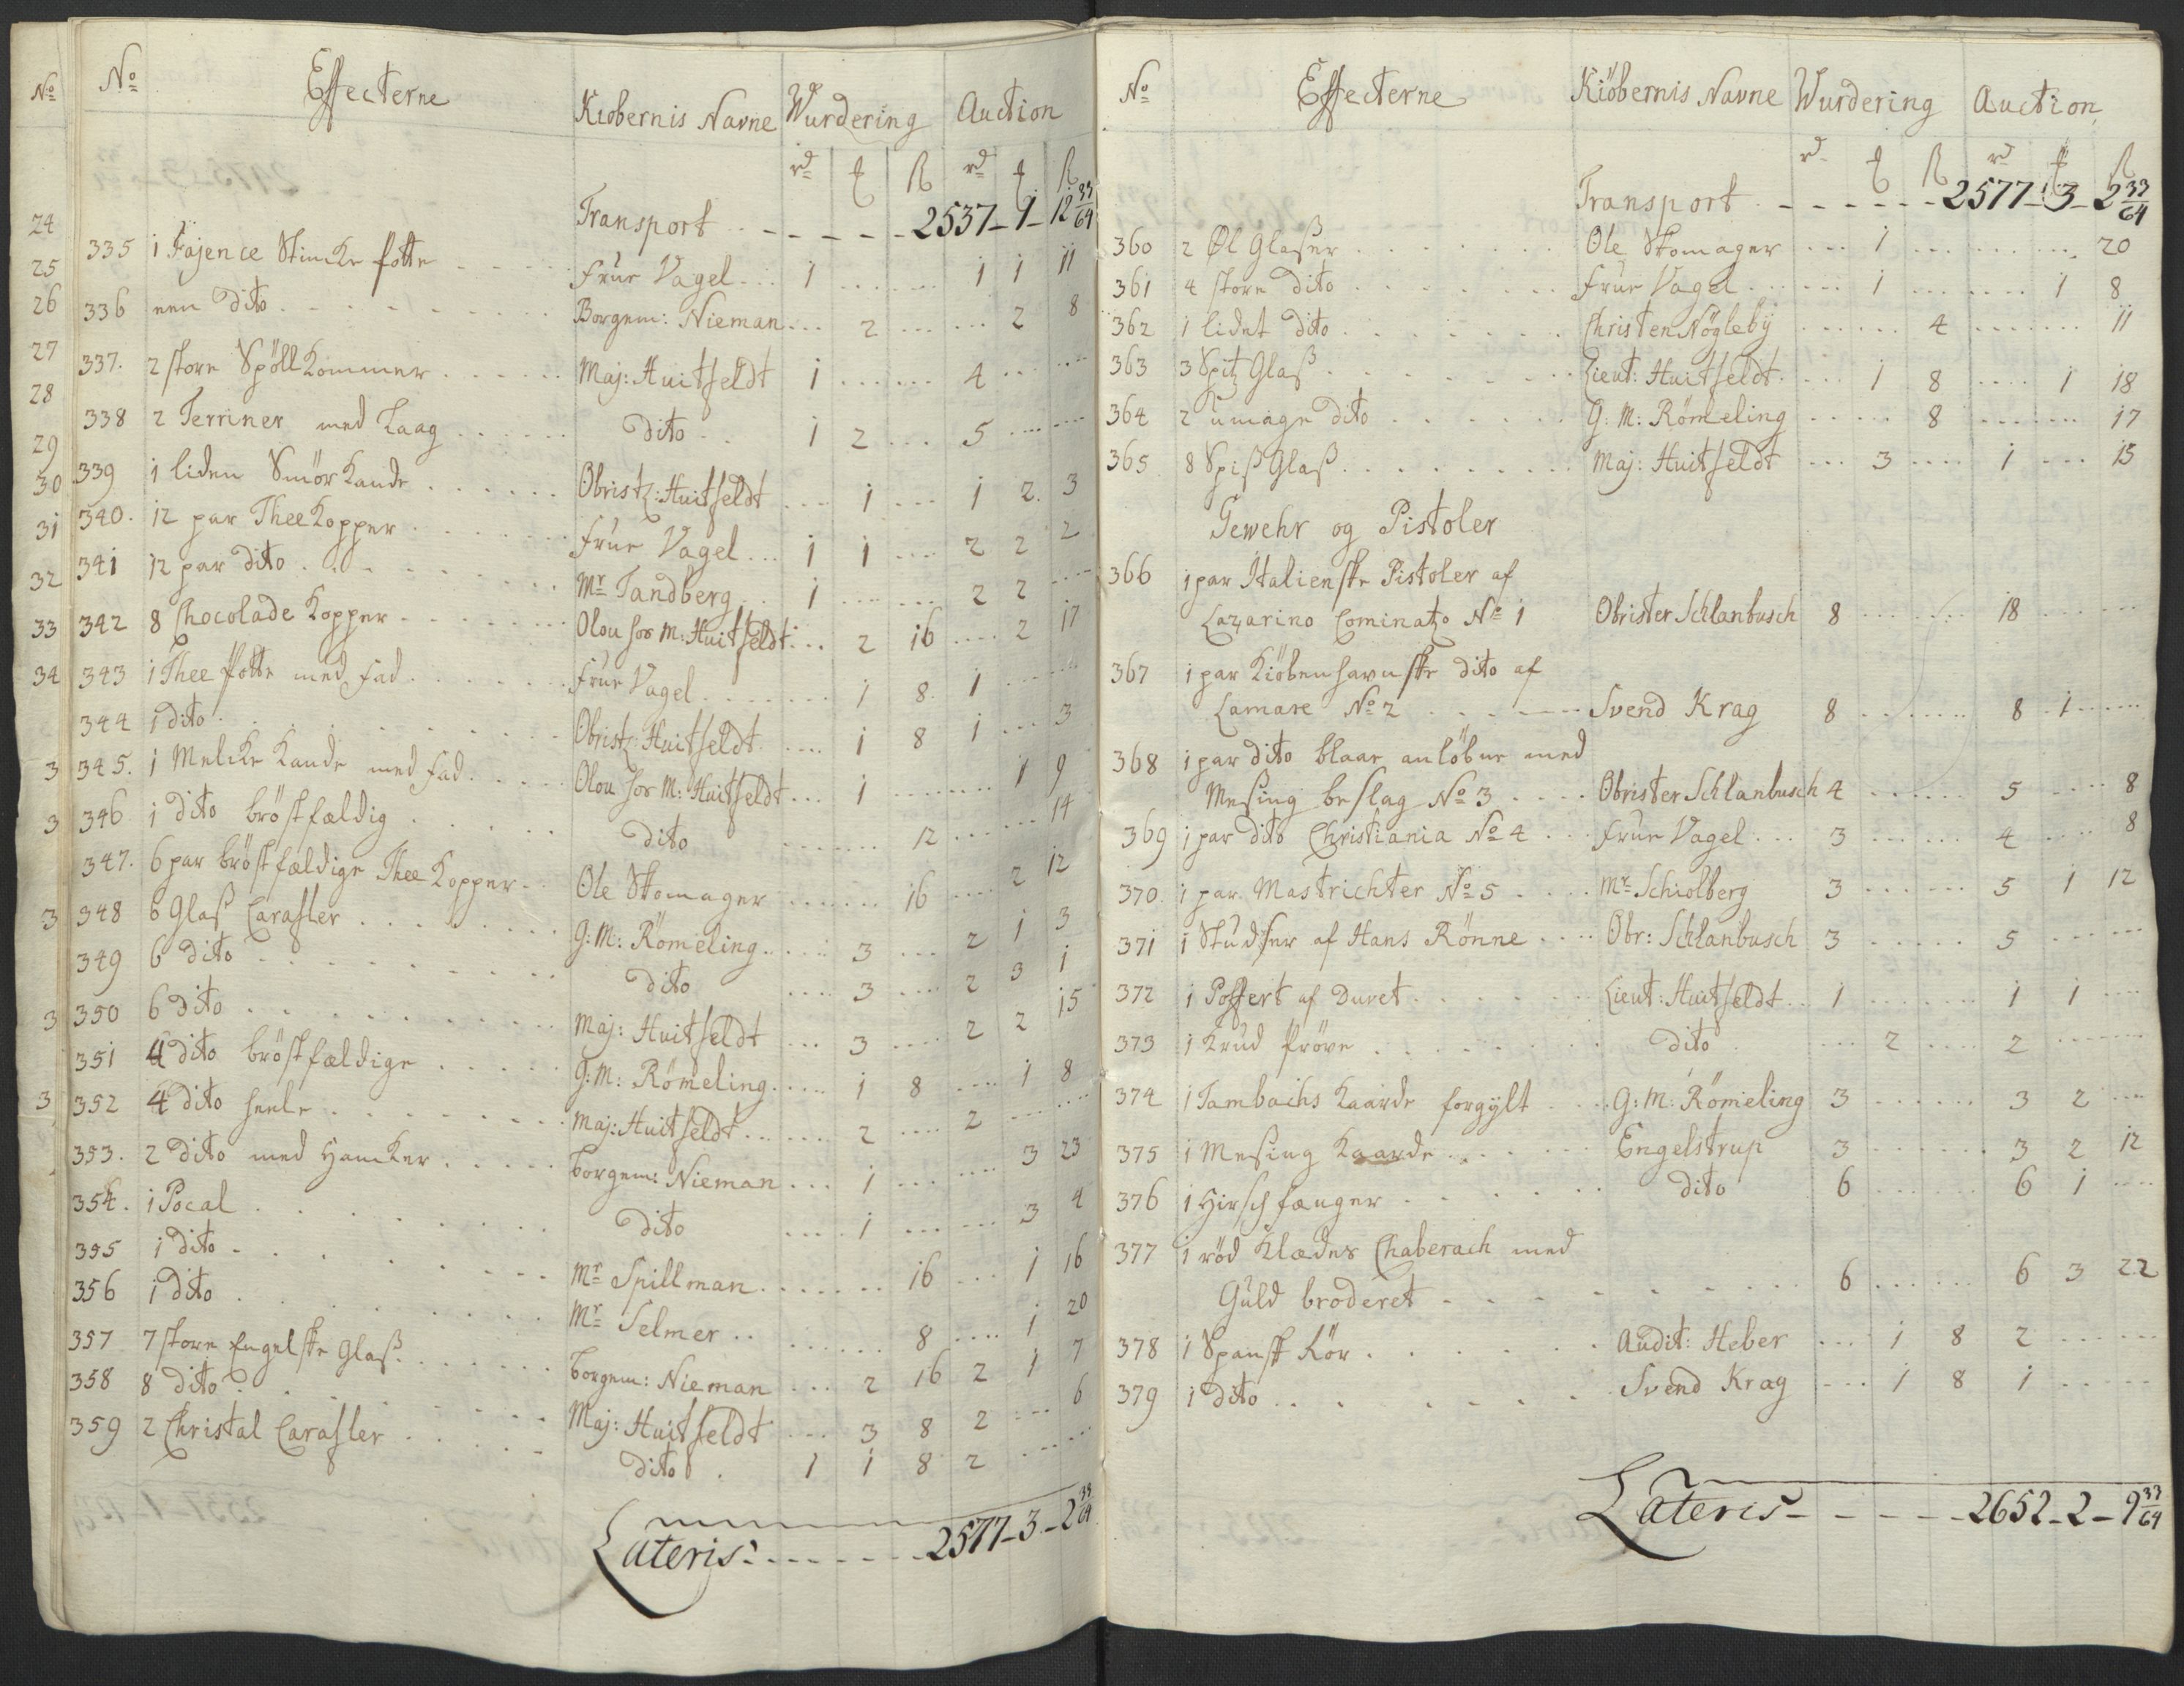 No
24
25
26
27
28
29
30
31
32
33
34
3
3
3
3
3
No Effecterne Kiobernis Navne Wurdering Auction
rd ₰ ß rd ₰ ß
Transport - - - - - - 2537 - 1 - 12 33/64
335 1 Fajence Stincke potte - - - - Frue Vagel ... 1 ...... 1 1 11
336 een dito . . . . . . Borgem: Nieman ... 2 ...... 2 8
337. 2 store Spöll Kommer . . . . . Maj: Huitfeldt 1 ...... 4 ... ...
338 2 Terriner med Laag . . . . . dito . . 1 2 ... 5 ... ...
339 1 liden Smör Kande . . . . . . Obristl: Huitfeldt ... 1 ... 1 2. 3
340. 12 par Thee Kopper . . . . . . Frue Vagel ... 1 1 ... 2 2 2
341 12 par dito . . . . . . . . Mr Tandberg . . 1 ...... 2 2 ...
342 8 Chocolade Kopper . . . . . . . Olou hos M: Huitfeldt ... 2 16 .... 2 17
343 1 Thee Potte med fad . . . . . . Frue Vagel ...... 1 8. 1 ... ...
344 1 dito . . . . . . . . . Obristl: Huitfeldt .... 1 8 1 ... 3
345. 1 Melcke Kande med fad . . . . . Olou hos M: Huitfeldt ... 1 ........ 1 9
346 1 dito bröstfældig . . . . . . dito ....... 12 ...... 14
347. 6 par bröstfældige Thee Kopper - . Ole Skomager ...... 16 .... 2 12
348 6 Glaß Carafler . . . . . . . . G: M: Römeling .... 3 ... 2 1 3
349 6 dito . . . . . . . . . dito .... 3 .... 2 3 1
350 6 dito . . . . . . . . . Maj: Huitfeldt ... 3 .... 2 2 15
351 4 dito bröstfældige . . . . . G: M: Römeling .... 1 8 .... 1 8
352 4 dito heele . . . . . . . Maj: Huitfeldt ..... 2 .... 2 ... ...
353. 2 dito med Hancker . . . . . Borgem: Nieman ... 1 ....... 3 23
354. 1 Pocal . . . . . . . . dito .... 1 ... ... 3 4
355 1 dito . . . . . . . . Mr Spillman ....... 16 ... 1 16
356 1 dito . . . . . . . . Mr Selmer ........ 8 .... 1 20
357 7 store Engelske Glaß . . . . . . Borgem: Nieman ... 2 16 2 1 7
358 8 dito . . . . . . . . Maj: Huitfeldt ... 3 8 2 ... 6
359 2 Christal Carafler . . . . . dito . 1 1 8 2 ... ...
Lateris - - - - - - 2577 - 3 - 2 33/64
No Effecterne Kiöbernis Navne Wurdering Auction
rd ₰ ß rd ₰ ß
Transport - - - - - - 2577 - 3 - 2 33/64
360 2 Øl Glaßer . . . . . . . Ole Skomager ... 1 ......... 20
361 4 store dito . . . . . . . Frue Vagel ...... 1 ....... 1 8
362 1 lidet dito . . . . . . . Christen Nögleby ...... 4 ....... 11
363 3 Spitz Glaß . . . . . . . Lieut: Huitfeldt .... 1 8 .... 1 18
364 2 umage dito . . . . . . G: M: Römeling ..... 8 ....... 17
365 8 Spiß Glaß . . . . . . . . Maj: Huitfeldt ... 3 .... 1 ... 15
Gewehr og Pistoler
366 1 par Italienske Pistoler af
Lazarino Cominatzo No 1 Obrister Schlanbusch 8 ...... 18 ......
367 1 par Kiöbenhavnske dito af
Lamare No 2 . . . . Svend Krag 8 ...... 8 1 ...
368 1 par dito blaae anlöbne med
Meßing beslag No 3 . . . . Obrister Schlanbusch 4 ...... 5 .... 8
369 1 par dito Christiania No 4 . . . Frue Vagel ... 3 ...... 4 .... 8
370. 1 par Mastrichter No 5 . . . . Mr Schiolberg 3 ...... 5 1 12
371 1 Studser af Hans Rönne . . . . Obr: Schlanbusch 3 ..... 5 ......
372 1 Poffert af Duret . . . . . . Lieut: Huitfeldt .. 1 ...... 1 1 ...
373 1 Krud Pröve . . . . . . . . dito ... 2 .... 2 ......
374 1 Tambachs Kaarde forgylt . . . . G: M: Römeling 3 ...... 3 2 ...
375 1 Meßing Kaarde . . . . . . Engelstrup 3 ...... 3 2 12
376 1 Hirschfænger . . . . . . dito 6 ...... 6 1 ...
377 1 röd Klædes Chaberach med
Guld broderet - - - - - - - 6 ...... 6 3 22
378 1 Spansk Rör . . . . . . Audit: Heber ... 1 8 2 ......
379 1 dito . . . . . . . . Svend Krag ... 1 8 1 ......
Lateris - - - - - - 2652 - 2 - 9 33/64